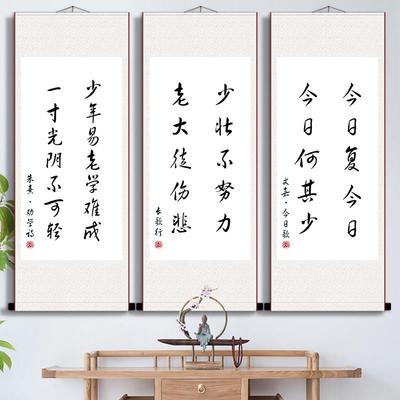 少年易老学难成
一寸光阴不可轻
朱熹·劝学诗
少壮不努力
老大徒伤悲
长歌行
今日复今日
今日何其少
文嘉·今日歌